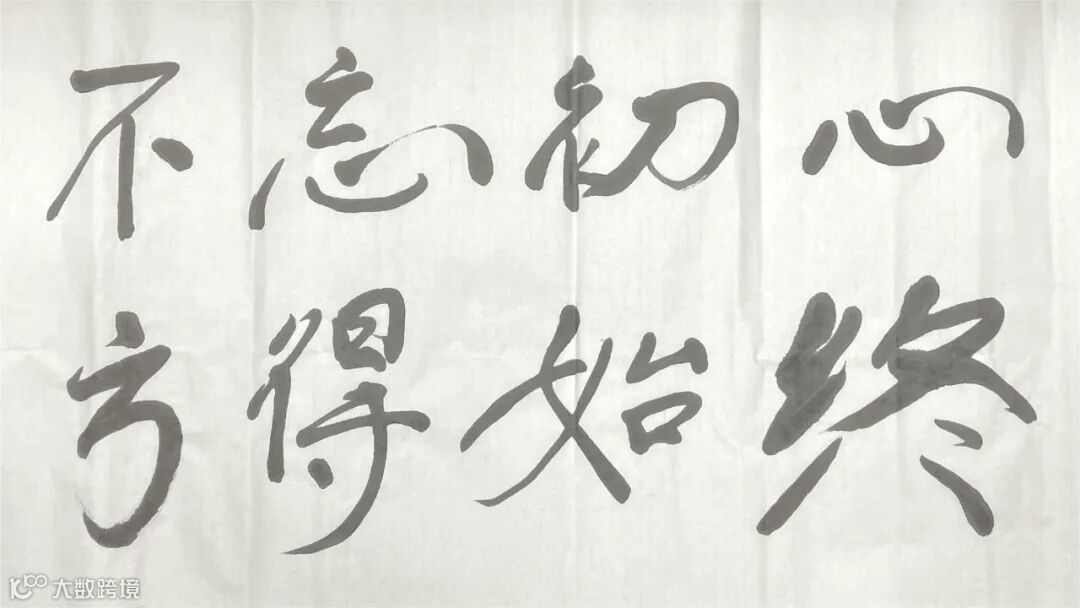 不忘初心
方得始终
大数跨境